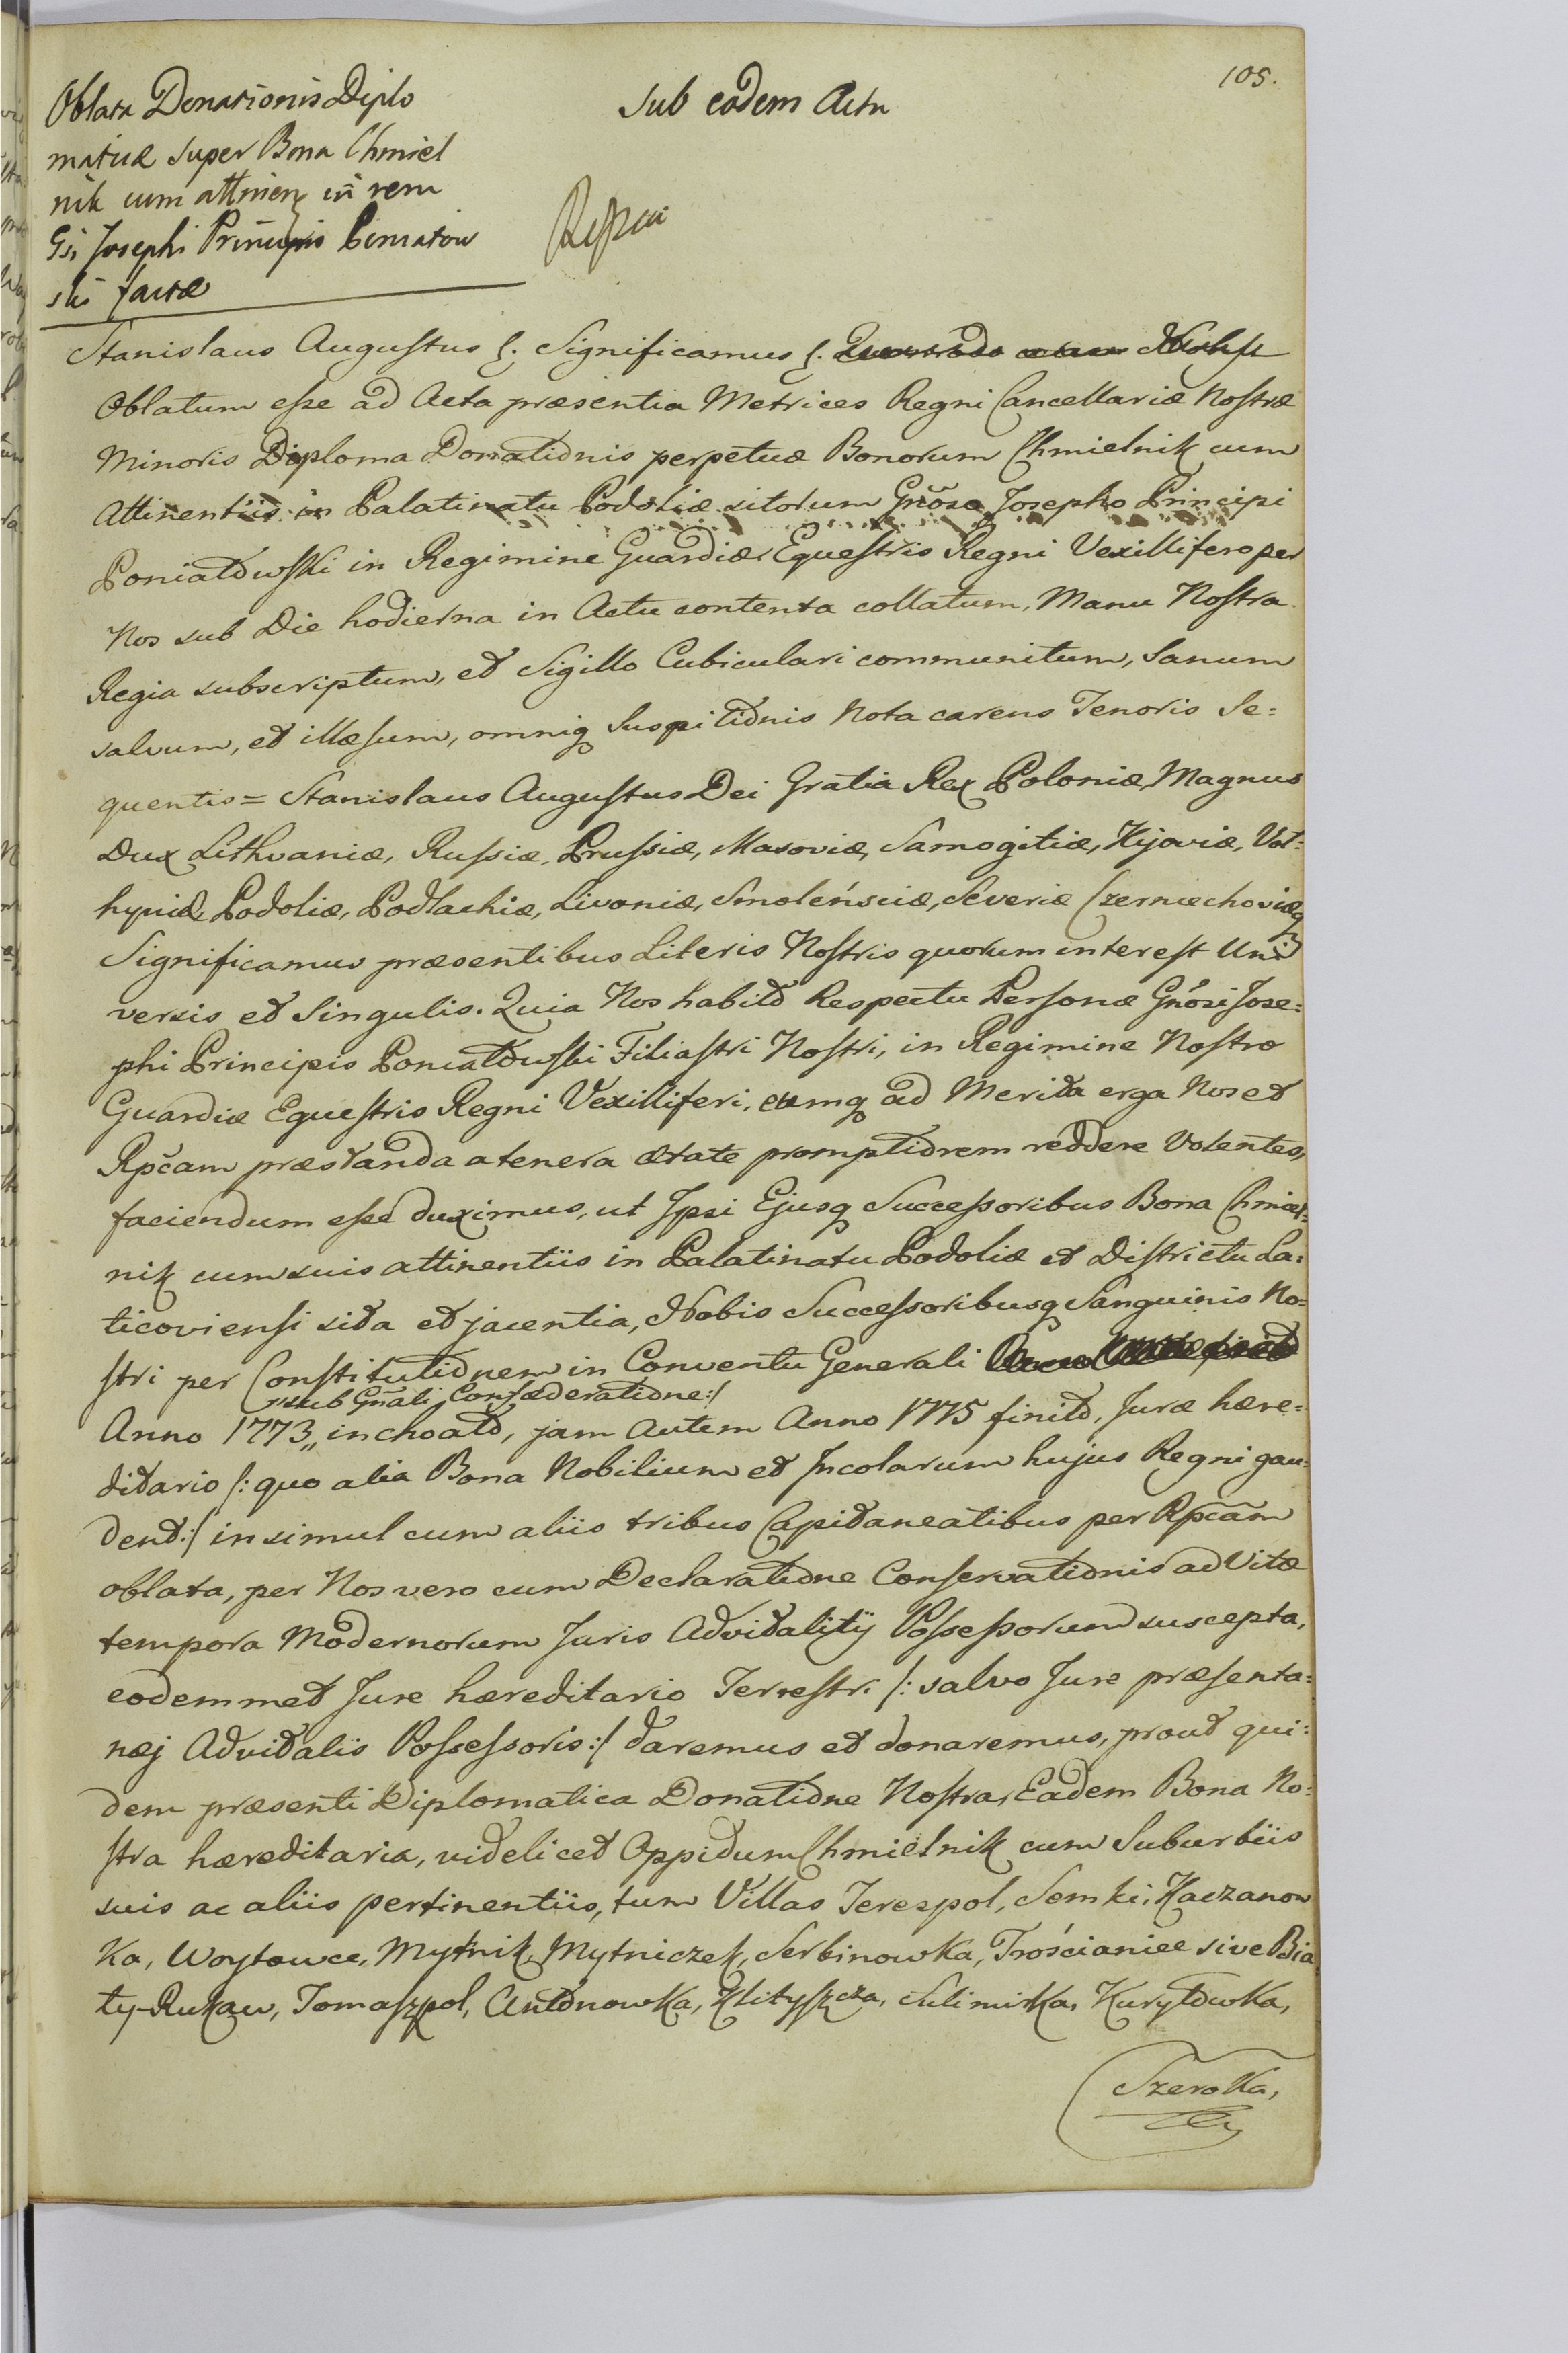 105.
Oblata Donationis Diplo
maticæ super Bona Chmiel
nik cum attinen in rem
Gsi Josephi Principis Poniatow
ski factæ
Sub eodem Actu
Stanislaus Augustus Significamus
Oblatum esse ad Acta præsentia Metrices Regni Cancellariæ Nostræ
Minoris Diploma Donationis perpetuæ Bonorum Chmielnik cum
Attinentiis in Palatinatu Podoliæ sitorum Gnõso Josepho Principi
Poniatowski in Regimine Guardiæ Equestris Regni Vexillifero per
Nos sub Die hodierna in Actu contenta collatum, Manu Nostra
Regia subscriptum, et Sigillo Cubiculari communitum, Sanum
salvum, et illæsum, omniq Suspitionis Nota carens Tenoris Se=
quentis = Stanislaus Augustus Dei Gratia Rex Poloniæ, Magnus
Dux Lithvaniæ, Russiæ, Prussiæ, Masoviæ, Samogitiæ, Kijoviæ, Vol=
hyniæ, Podoliæ, Podlachiæ, Livoniæ, Smoleńsciæ, Severiæ Czerniechoviæq
Significamus præsentibus Literis Nostris quorum interest Uni
versis et Singulis. Quia Nos habito Respectu Personæ Gnõsi Jose=
phi Principis Poniatowski Filiastri Nostri, in Regimine Nostro
Guardiæ Equestris Regni Vexilliferi, eumq ad Merita erga Nos et
Rpcam præstanda a tenera ætate promptiorem reddere Volentes,
faciendum esse duximus, ut Ipsi Ejusq Successoribus Bona Chmiel=
nik cum suis attinentiis in Palatinatu Podoliæ et Districtu La=
ticoviensi sita et jacentia, Nobis Successoribusq Sanguinis No=
stri per Constitutionem in Conventu Generali
/:sub Gnãli Confæderatione:/
Anno 1773,, inchoato, jam Autem Anno 1775 finito, Juræ hære=
ditario /: quo alia Bona Nobilium et Incolarum hujus Regni gau=
dent:/ insimul cum aliis tribus Capitaneatibus per Rpcãm
oblata, per Nos vero cum Declaratione Conservationis ad Vitæ
tempora Modernorum Juris Advitalitÿ Possessorum suscepta,
eodemmet Jure hæreditario Terrestri /: salvo Jure præsenta=
nej Advitalis Possessoris:/ daremus et donaremus, prout qui=
dem præsenti Diplomatica Donatione Nostra, Eadem Bona No=
stra hæreditaria, videlicet Oppidum Chmielnik cum Suburbiis
suis ac aliis pertinentiis, tum Villas Terespol, Semki, Kaczanow
ka, Woytowce, Mytnik, Mytniczek, Serbinowka, Trościaniec sive Bia
ły-Rukaw, Tomaszpol, Antonowka, Klityszcza, Sulimirka, Kuryłowka,
Szeroka,